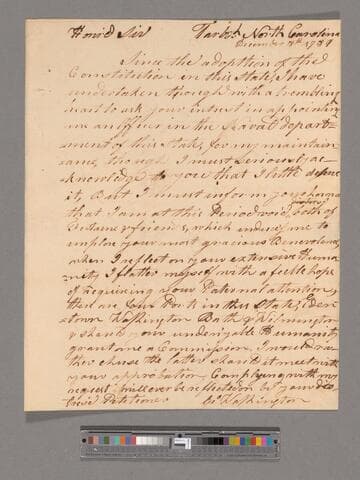 Honr'd Sir Tarbo. North Carolina
December 7th. 1789
Since the adoption of the
Constitution in this State, I have
undertaken though with a trembling
heart to ask your intrest in appointing
me an officer in the Naval depart-
ment of this State, for my maintain
ance, though I must seriously ac-
knowledge to you that I little deserve
it, But I must inform your honour
that I am at this Period void, both of
& friends, which induces me to
implore your most gracious Benevolence,
when I reflect on your extensive Huma-
nity, I flatter myself with a feeble hope
of requiring your Paternal attention,
there are Ports in this State, Eden-
town Washington Bath & Wilmington
& should your undeniable Humanity
grant me a Commission, I would ra-
ther chuse the latter should it meet with
your approbation, Complying with my
request will ever be reflected on by your
Petitioner Washington